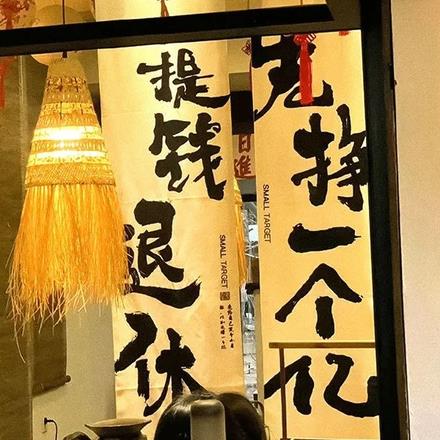 先挣一个亿
SMALL TARGET
提钱退休
SMALL TARGET
日進